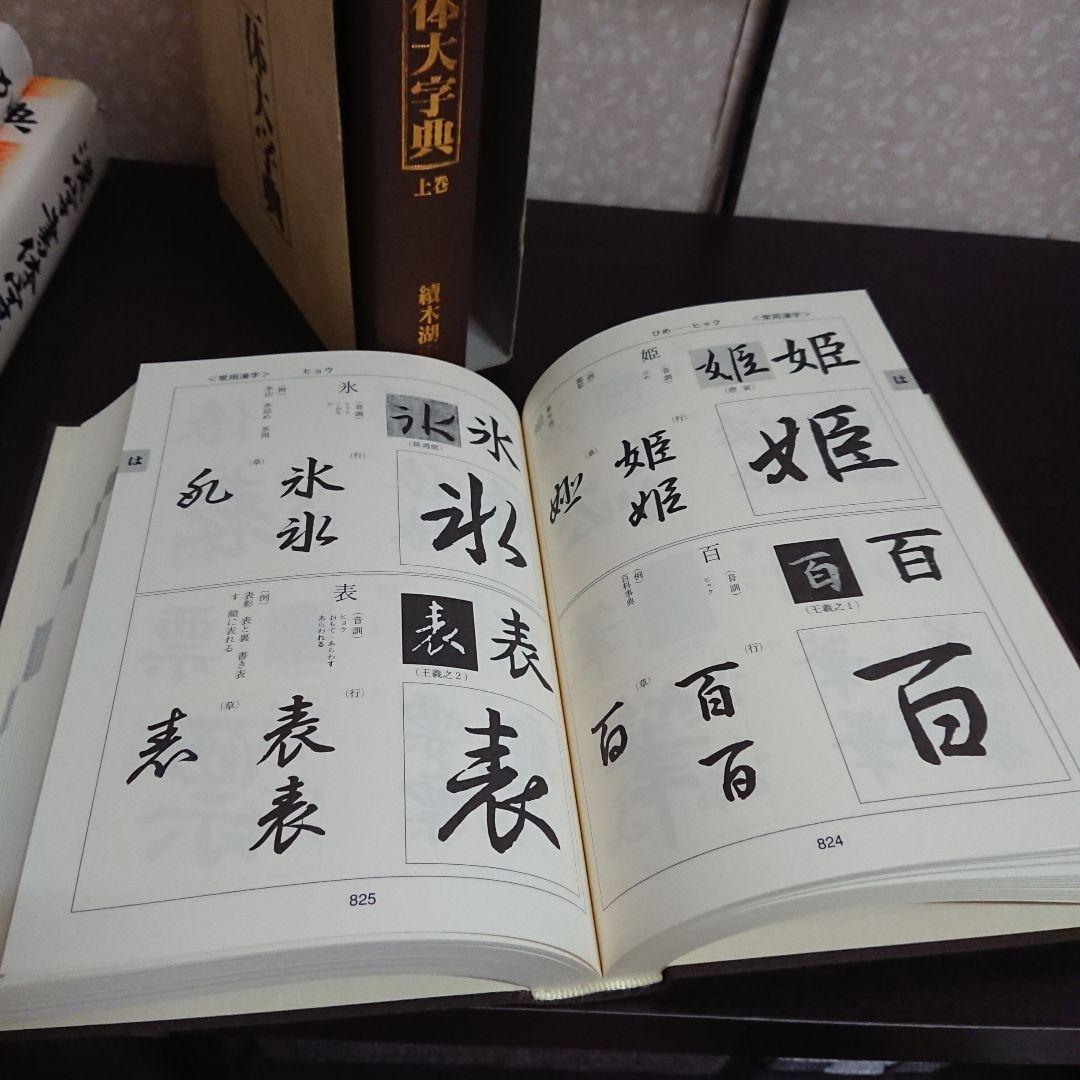 体大字典
上巻
續木湖
体大字典
ひめ——ヒャク
＜常用漢字＞
は
姫
（音訓）
ひめ
（例）
姫 姫
（唐 寅）
姫
（行）
姫
姫
（草）
姫
百
（音訓）
ヒャク
（例）
百科事典
百 百
（王羲之1）
百
（行）
百
百
（草）
百
824
＜常用漢字＞
ヒョウ
は
氷
（音訓）
ヒョウ
こおり
ひ
（例）
氷山 氷詰め 氷雨
氷 氷
（孫過庭）
氷
（行）
氷
氷
（草）
氷
表
（音訓）
ヒョウ
おもて・あらわす
あらわれる
（例）
表彰 表と裏 書き表
す 顔に表れる
表 表
（王羲之2）
表
（行）
表
表
（草）
表
825